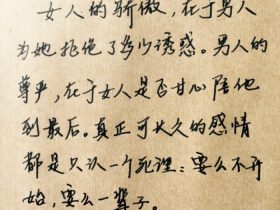 女人的骄傲，在于男人
为她拒绝了多少诱惑。男人的
尊严，在于女人是否甘心陪他
到最后。真正可长久的感情
都是只认一个死理：要么不开
始，要么一辈子。